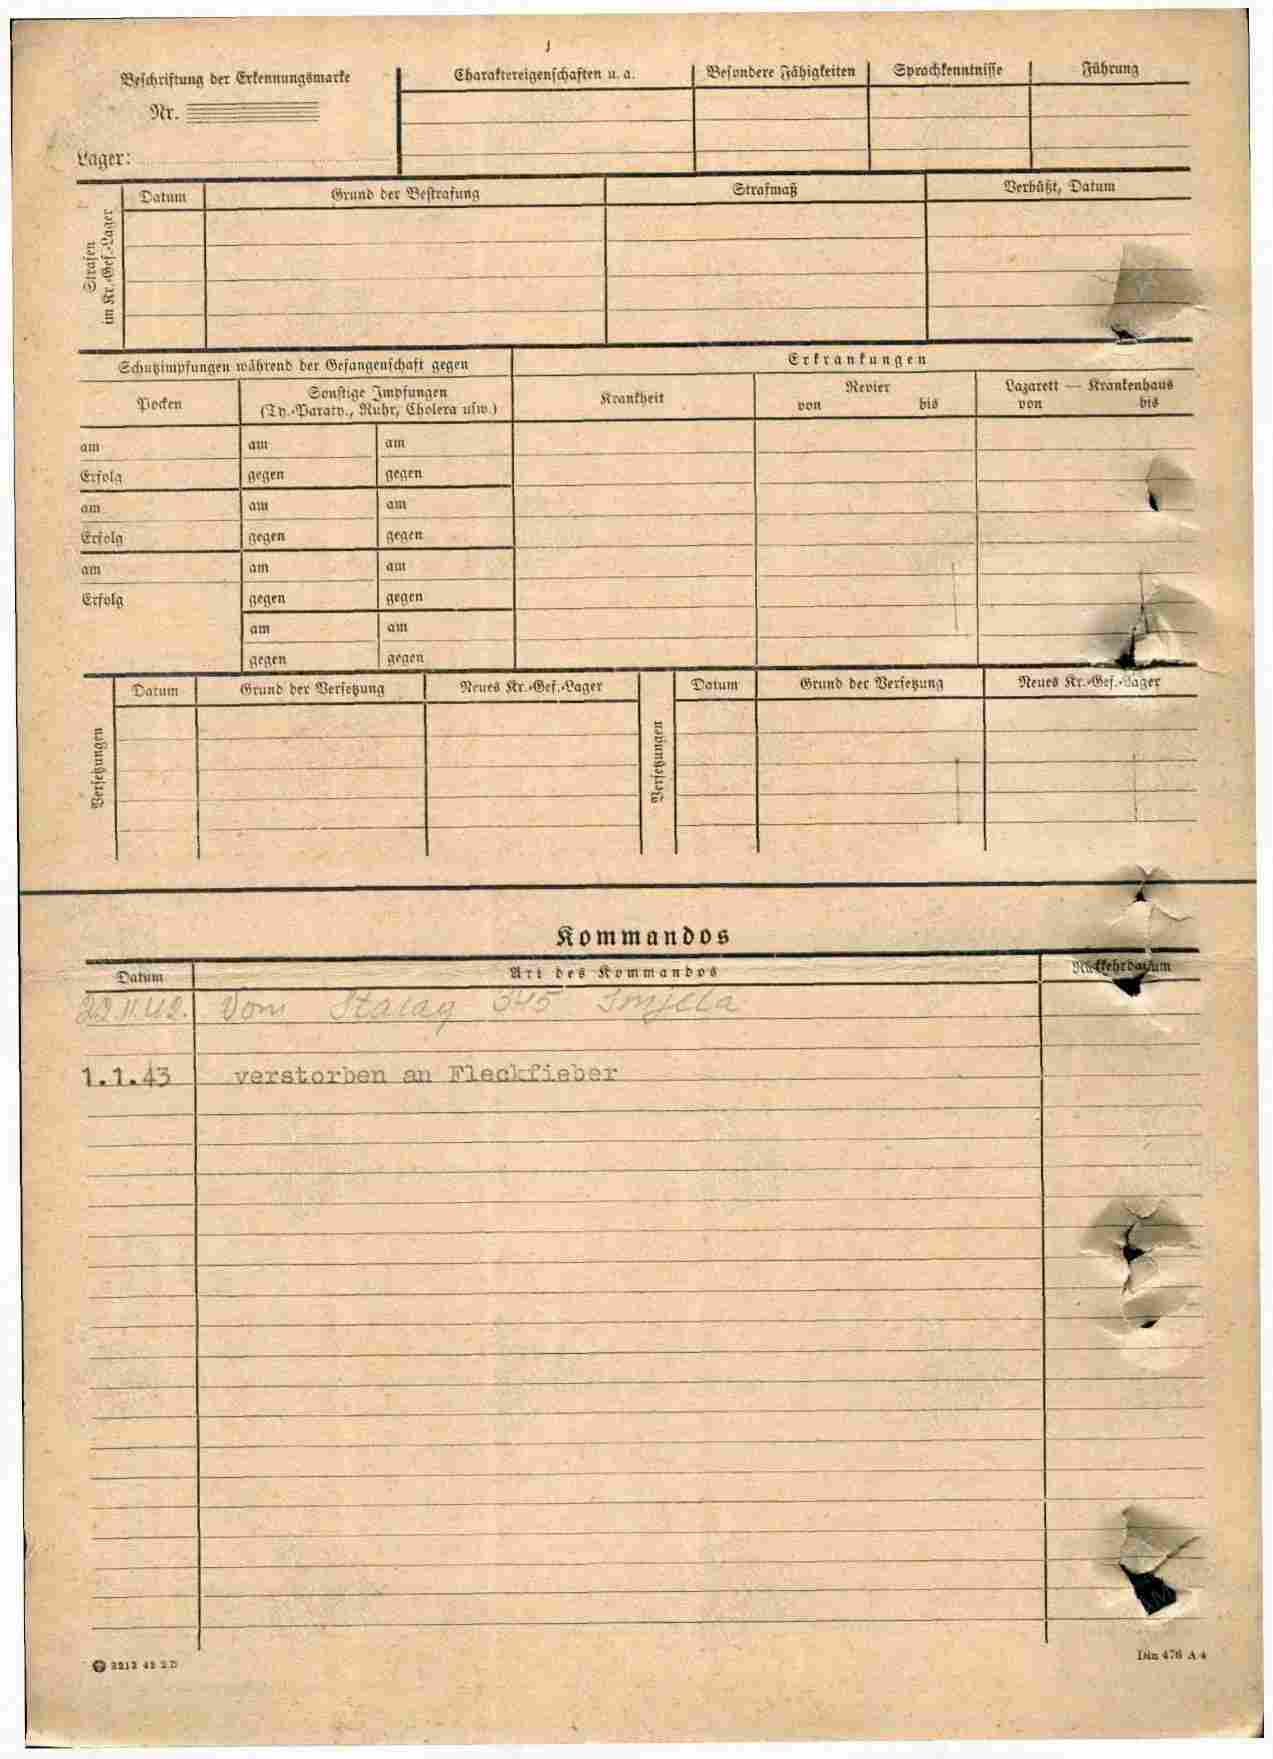 Beschriftung der Erkennungsmarke
Nr.
Lager:
Charaktereigenschaften u. a.
Besondere Fähigkeiten
Sprachkenntnisse
Führung
Strafen
im Kr.-Gef.-Lager
Datum
Grund der Bestrafung
Strafmaß
Verbüßt, Datum
Schutzimpfungen während der Gefangenschaft gegen
Erkrankungen
Pocken
Sonstige Impfungen
(Ty.-Paraty., Ruhr, Cholera usw.)
Krankheit
Revier
von bis
Lazarett — Krankenhaus
von bis
am am am
Erfolg gegen gegen
am am am
Erfolg gegen gegen
am am am
Erfolg gegen gegen
am am
gegen gegen
Versetzungen
Datum Grund der Versetzung Neues Kr.-Gef.-Lager
Versetzungen
Datum Grund der Versetzung Neues Kr.-Gef.-Lager
Kommandos
Datum Art des Kommandos Rückkehrdatum
22.11.42. Vom Stalag 345 Smjela
1.1.43 verstorben an Fleckfieber
Din 476 A 4